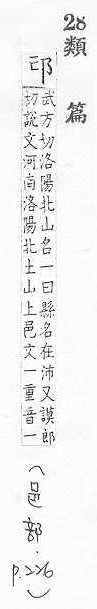 28
類篇
邙
武方切洛陽北山名一曰縣名在沛又謨郎
切說文河南洛陽北土山上邑文一重音一
(邑部.p.226)